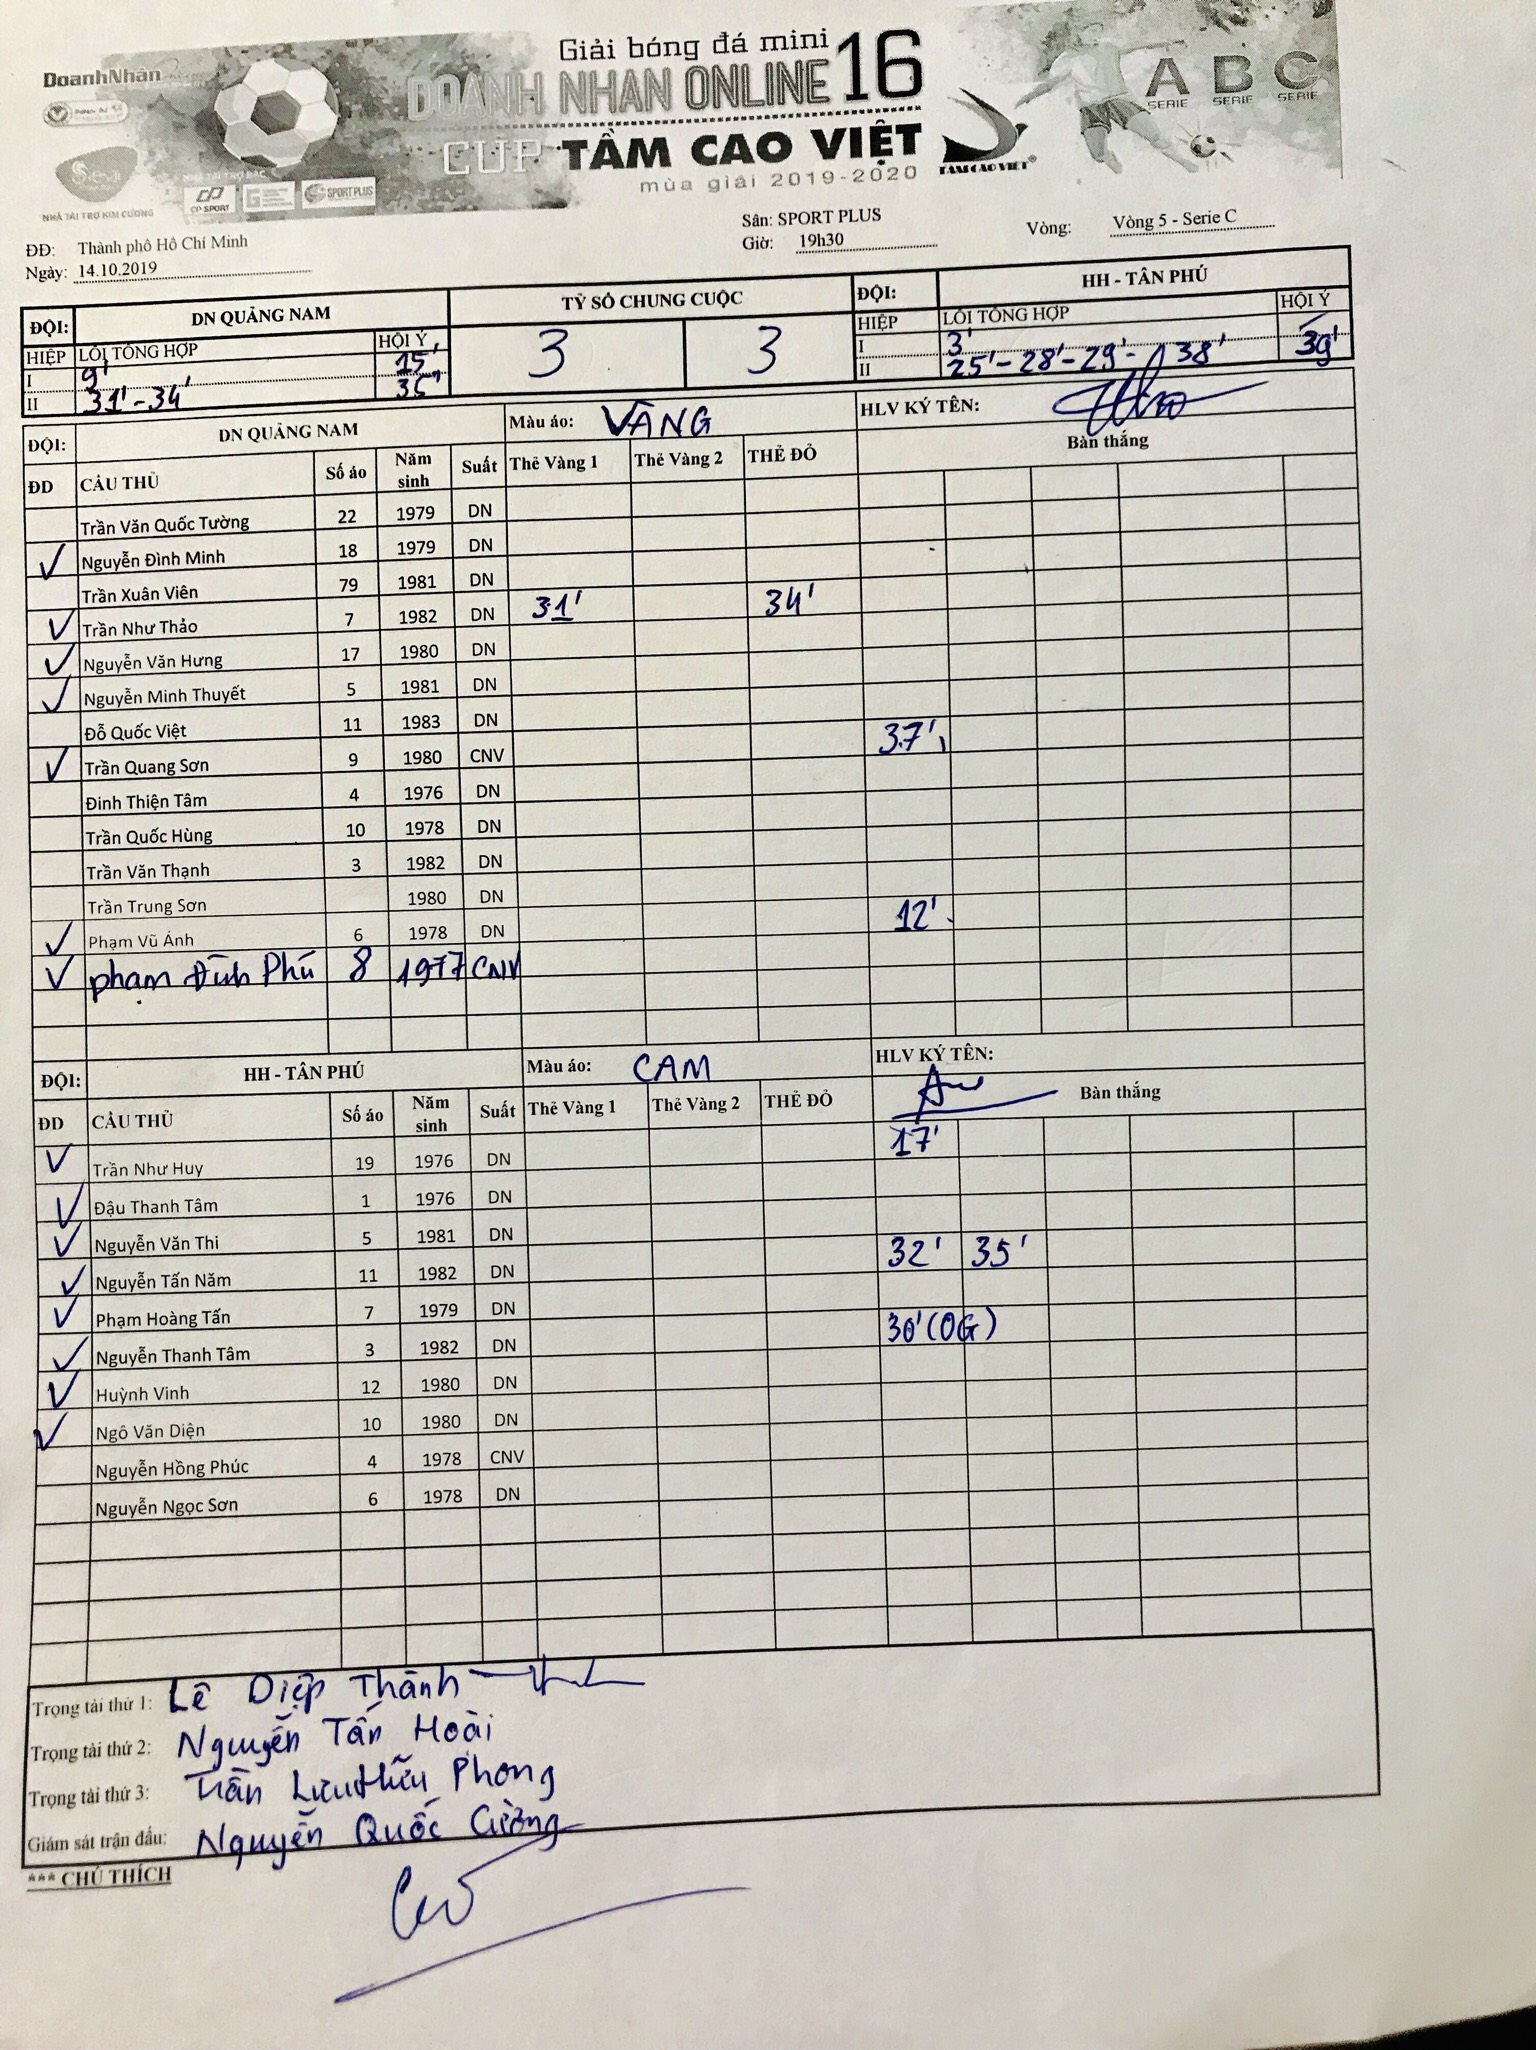 DoanhNhân
Giải bóng đá mini
DOANH NHAN ONLINE 16
CUP TẦM CAO VIỆT
mùa giải 2019-2020
A SERIE B SERIE C SERIE
TAMCAOVIET®
NHÀ TÀI TRỢ KIM CƯƠNG
NHÀ TÀI TRỢ BẠC
CP SPORT
SPORT PLUS
ĐĐ: Thành phô Hô Chí Minh
Sân: SPORT PLUS
Ngày: 14.10.2019
Giờ: 19h30
Vòng: Vòng 5 - Serie C
ĐỘI: DN QUẢNG NAM TỶ SỐ CHUNG CUỘC ĐỘI: HH - TÂN PHÚ
HIỆP LỖI TỔNG HỢP HỘI Ý 3 3 HIỆP LỖI TỔNG HỢP HỘI Ý
I 9' 15' I 3'
II 31'-34' 35' II 25'-28'-29'- 38' 39'
ĐỘI: DN QUẢNG NAM Màu áo: VÀNG HLV KÝ TÊN:
ĐD CẦU THỦ Số áo Năm sinh Suất Thẻ Vàng 1 Thẻ Vàng 2 THẺ ĐỎ Bàn thắng
Trần Văn Quốc Tường 22 1979 DN
✓ Nguyễn Đình Minh 18 1979 DN
Trần Xuân Viên 79 1981 DN
✓ Trần Như Thảo 7 1982 DN 31' 34'
✓ Nguyễn Văn Hưng 17 1980 DN
✓ Nguyễn Minh Thuyết 5 1981 DN
Đỗ Quốc Việt 11 1983 DN
✓ Trần Quang Sơn 9 1980 CNV 37'
Đinh Thiện Tâm 4 1976 DN
Trần Quốc Hùng 10 1978 DN
Trần Văn Thạnh 3 1982 DN
Trần Trung Sơn 1980 DN
✓ Phạm Vũ Ánh 6 1978 DN 12'
✓ phạm Đình Phú 8 1977 CNV
ĐỘI: HH - TÂN PHÚ Màu áo: CAM HLV KÝ TÊN:
ĐD CẦU THỦ Số áo Năm sinh Suất Thẻ Vàng 1 Thẻ Vàng 2 THẺ ĐỎ Bàn thắng
✓ Trần Như Huy 19 1976 DN 17'
✓ Đậu Thanh Tâm 1 1976 DN
✓ Nguyễn Văn Thi 5 1981 DN 32' 35'
✓ Nguyễn Tấn Năm 11 1982 DN
✓ Phạm Hoàng Tấn 7 1979 DN 30' (OG)
✓ Nguyễn Thanh Tâm 3 1982 DN
✓ Huỳnh Vinh 12 1980 DN
✓ Ngô Văn Diện 10 1980 DN
Nguyễn Hồng Phúc 4 1978 CNV
Nguyễn Ngọc Sơn 6 1978 DN
Trọng tài thứ 1: Lê Diệp Thành
Trọng tài thứ 2: Nguyễn Tấn Hoài
Trọng tài thứ 3: Trần Lưu Hữu Phong
Giám sát trận đấu: Nguyễn Quốc Cường
*** CHÚ THÍCH